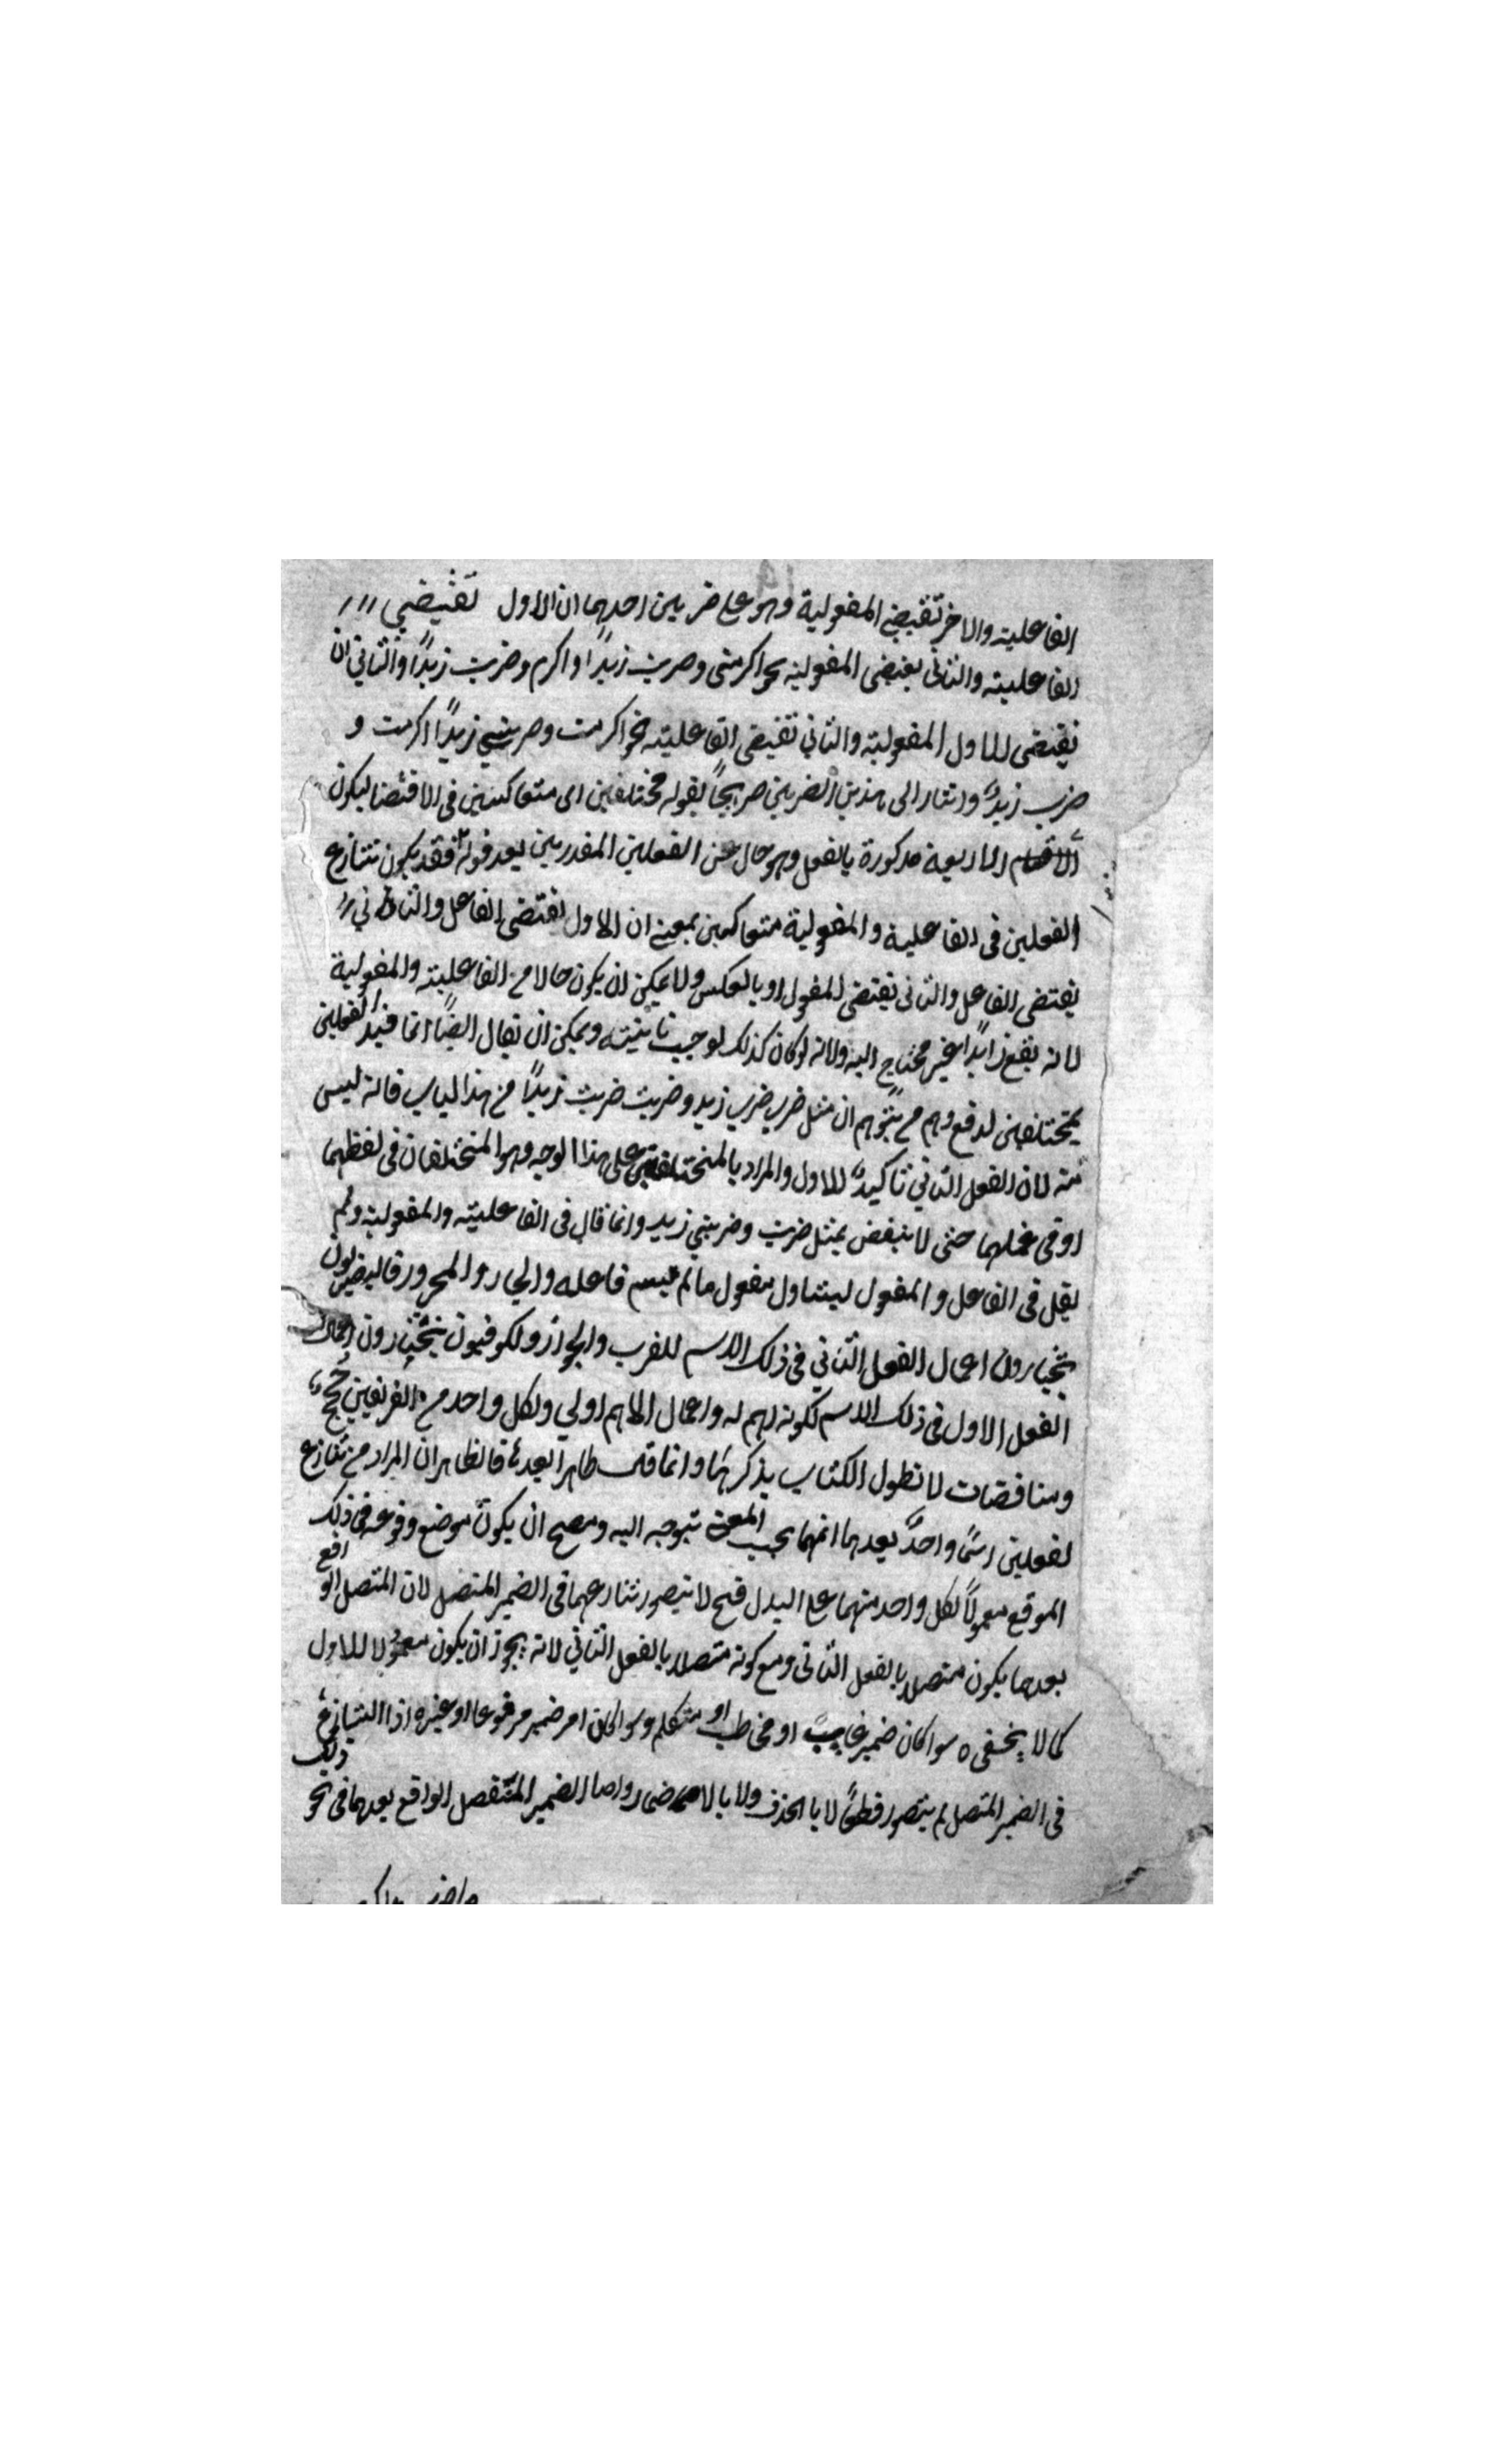 الفاعلية والاخر تقتضى المفعولية وهو على ضربين احدهما ان الاول تقتضي
الفاعلية والثانى يقتضى المفعولية نحو اكرمنى وضربت زيدًا واكرم وضربت زيدًا والثاني ان
تقتضى للاول المفعولية والثاني تقتضى الفاعلية نحو اكرمت وضربني زيدًا اكرمت و
ضرب زيدٌ واشار الى هذين الضربين صريحًا بقوله مختلفين اى متعاكسين فى الاقتضا ليكون
الاقسام الاربعة مذكورة بالفعل وهو حال عن الفعلين المقدرين بعد قوله فقد يكون تنازع
الفعلين فى الفاعلية والمفعولية متعاكسين بمعنى ان الاول يقتضى الفاعل والثانى
تقتضى الفاعل والثانى تقتضى المفعول او بالعكس ولا يمكن ان يكون حالا من الفاعلية والمفعولية
لانه يقع زايدًا غير محتاج اليه ولانه لو كان كذلك لوجب تانيثه ويمكن ان يقال ايضًا انما قيد الفعلين
بمختلفين لدفع وهم من يتوهم ان مثل ضرب ضرب زيد وضربت ضربت زيدًا من هذا الباب فانه ليس
منه لان الفعل الثاني تاكيدٌ للاول والمراد بالمختلفين على هذا الوجه وهو المختلفان فى لفظهما
او فى عملهما حتى لا ينتقض بمثل ضربت وضربني زيد وانما قال فى الفاعلية والمفعولية ولم
يقل فى الفاعل والمفعول ليتناول مفعول ما لم يسم فاعله والجار والمجرور فالبصريون
يختارون اعمال الفعل الثاني فى ذلك الاسم للقرب والجواز ولكوفيون يختارون اعمال
الفعل الاول فى ذلك الاسم لكونه اهم له واعمال الاهم اولي ولكل واحد من الفريقين حجج
ومناقضات لا نطول الكتاب بذكرها وانما قلت ظاهرًا بعدهما فالظاهر ان المراد من تنازع
لفعلين اسمًا واحدًا بعدهما انهما بحسب المعنى تتوجه اليه وصح ان يكون موضع وقوعه فى ذلك
الموقع معمولًا لكل واحد منهما على البدل فح لا يتصور تنازعهما فى الضمير المتصل لان المتصل الواقع
بعدهما يكون متصلا بالفعل الثانى ومع كونه متصلا بالفعل الثاني لانه يجوز ان يكون معمولا للاول
كما لا يخفى ه سوا كان ضمير غايب او مخاطب او متكلم وسوا كان امر ضمير مرفوعا او غيره اذا التنازع
فى الضمير المتصل لم يتصور قطعًا لا بالحذف ولا بالاضمار واما الضمير المنفصل الواقع بعدهما فى نحو ذلك